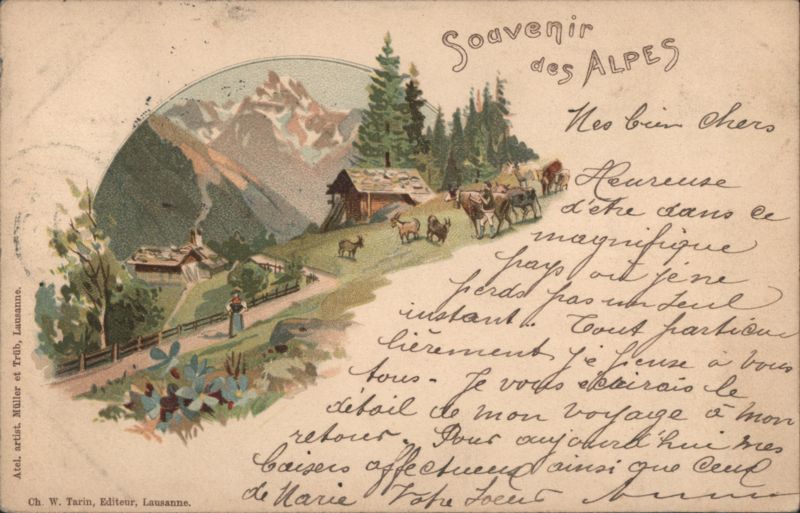 Souvenir
des ALPES
Mes bien chers
Heureuse
d'être dans ce
magnifique
pays où je ne
perds pas un seul
instant. Tout particu
lièrement je pense à vous
tous - Je vous écrirais le
détail de mon voyage à mon
retour. Pour aujourd'hui mes
baisers affectueux ainsi que ceux
de Marie Votre Soeur
Atel. artist. Müller et Trüb, Lausanne.
Ch. W. Tarin, Editeur, Lausanne.